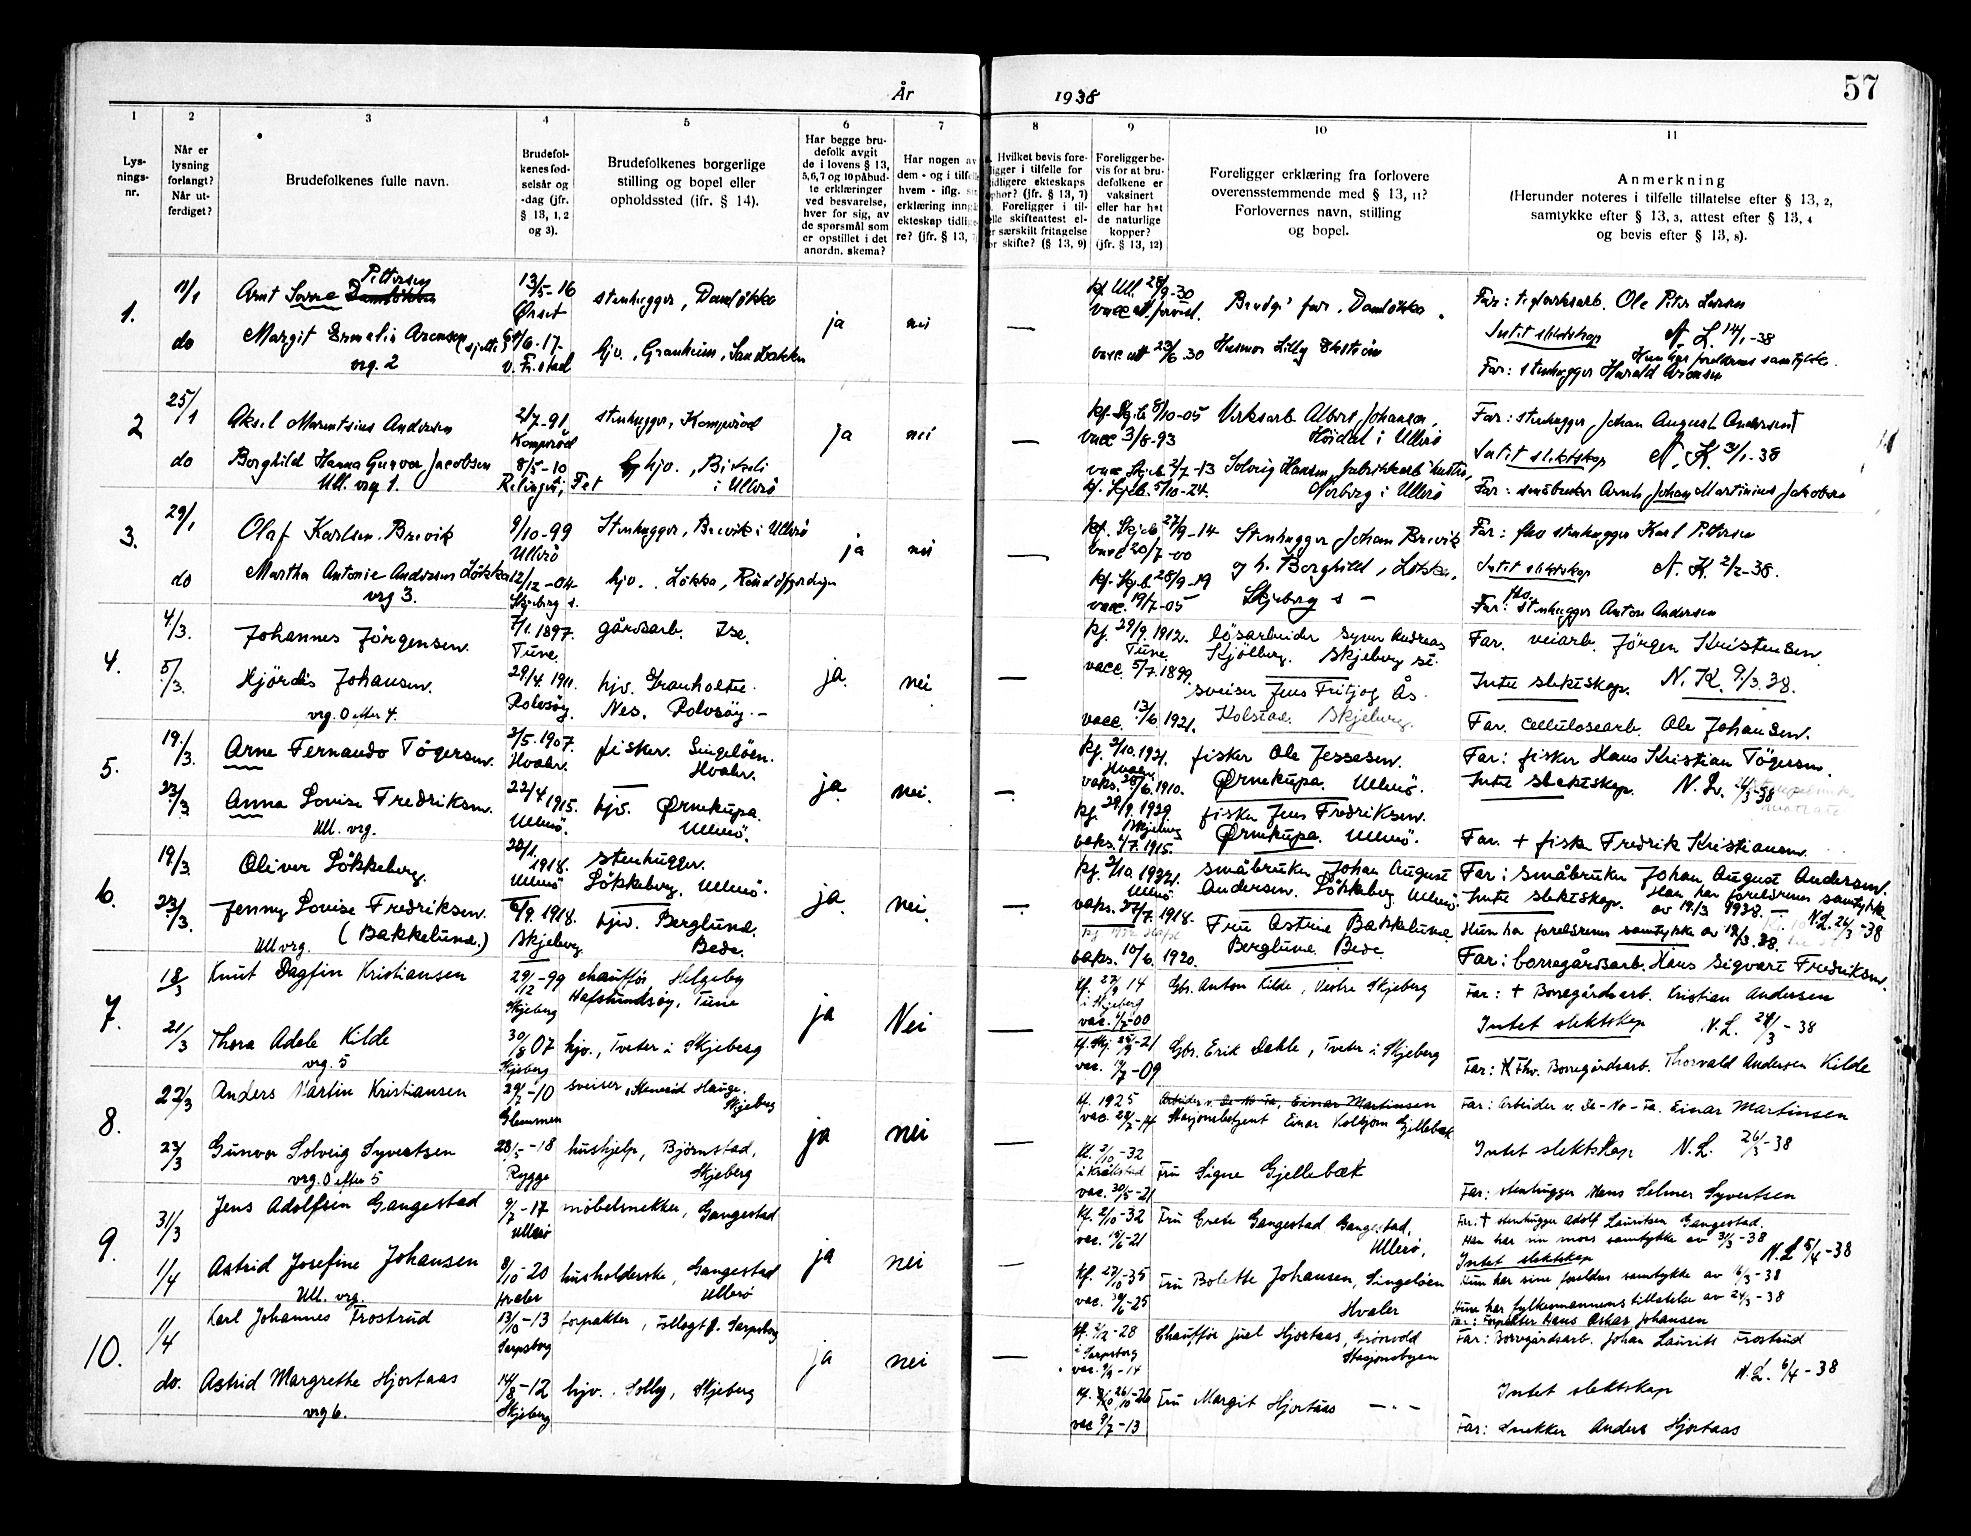 År 1938
57
1
2
3
4
5
6
7
8
9
10
11
Lys-
nings-
nr.
Når er
lysning
forlangt?
Når ut-
ferdiget?
Brudefolkenes fulle navn.
Brudefol-
kenes fød-
selsår og
-dag (jfr.
§ 13, 1, 2
og 3).
Brudefolkenes borgerlige
stilling og bopel eller
opholdssted (ifr. § 14).
Har begge bru-
defolk avgit
de i lovens § 13,
5,6,7 og 10 påbud-
te erklæringer
ved besvarelse,
hver for sig, av
de spørsmål som
er opstillet i det
anordn. skema?
Har nogen av
dem - og i tilfelle
hvem - iflg.
erklæring inngå
ekteskap tidlige-
re? (jfr. § 13,
Hvilket bevis fore-
ligger i tilfelle for
tidligere ekteskaps
ophør? (jfr. § 13, 7)
Foreligger i til-
felle skifteattest el-
er særskilt fritagelse
for skifte? (§ 13, 9)
Foreligger be-
vis for at bru-
defolkene er
vaksinert
eller har hat
de naturlige
kopper?
(jfr. § 13, 12)
Foreligger erklæring fra forlovere
overensstemmende med § 13, 11?
Forlovernes navn, stilling
og bopel.
Anmerkning
(Herunder noteres i tilfelle tillatelse efter § 13, 2,
samtykke efter § 13, 3, attest efter § 13, 4
og bevis efter § 13, 8).
1.
11/1
Pettersen
Arnt Sverre
13/5-16
stenhugger, Damløkka
ja
nei
—
Brudg. far, Damløkka
Far: teglverksarb. Ole Peter Larsen
do
Margit Ermelin Arensen
vrg. 2
6-17
v. Fr.stad
hjv., Granheim, Sandbakken
vacc att 23/6 30
Husmor Lilly Ekström
Intet slektskap N. L. 14/1-38
Far: stenhugger Harald Arensen
2
25/1
Aksel Marentsius Andersen
2/7-91
stenhugger, Komperød
ja
nei
—
kf. Skjeb 8/10-05
vacc 3/8-93
Verksarb Albert Johansen,
Høidal i Ullerø
Far: stenhugger Johan August Andersen †
do
Borghild Hanna Gunvor Jacobsen
Ull. vrg 1.
8/5-10
hjv., Birkeli
i Ullerø
vacc Skjeb 2/7-13
kf. Skjeb. 5/10-24.
Solveig Hansen, fabrikkarb hustru,
Norberg i Ullerø
Intet slektskap N. K. 31/1-38
Far: småbruker Arnt Johan Martinius Jakobsen
3.
29/1
Olaf Karlsen Brevik
9/10-99
Ullerø
Stenhugger, Brevik i Ullerø
ja
nei
—
kf. Skjeb 27/9-14
vacc 20/7-00
Stenhugger Johan Brevik
og h. Borghild, Løkka,
Skjeberg s —
Far: fhv stenhugger Karl Pettersen
do
Martha Antonie Andersen Løkka
vrg 3.
12/12-04
Skjeberg s.
hjv., Løkka,
kf. Skjeb. 28/9-19
vacc. 19/7-05
Intet slektskap N. K. 2/2-38.
Far: fhv. stenhugger Anton Andersen
4.
4/3.
Johannes Jörgensen.
7/1. 1897.
Tune.
gårdsarb. Ise.
ja.
nei
—
kf. 29/9. 1912.
Tune.
vacc 5/7. 1899.
løsarbeider Syver Andreas
Kjölberg. Skjeberg st.
Far. veiarb. Jörgen Kristensen.
5/3.
Hjördis Johansen.
vrg. 0 efter 4.
29/4. 1911.
Rolvsöy.
hjv. Granholtet
Nes. Rolvsöy.—
vacc. 13/6. 1921.
sveiser Jens Fritjog Ås
Holstad. Skjeberg.
Intet slektskap. N. K. 9/3. 38.
Far. cellulosearb. Ole Johansen.
5.
19./3.
Arne Fernando Tögersen.
2/5. 1907.
Hvaler.
fisker. Singelöen.
Hvaler.
ja
nei.
—
kf. 2/10. 1921.
Hvaler
vaks. 28/6. 1910.
fisker Ole Jessesen.
Ørnekupa. Ullerö.
Far: fisker Hans Kristian Tögersen.
23/3.
Anna Lovise Fredriksen.
Ull. vrg.
22/4 1915.
Ullerö.
hjv. Ørnekupa.
Ullerö.
kf. 29/9. 1929
Skjeberg
vaks. 4/7. 1915.
fisker Jens Fredriksen.
Ørnekupa. Ullerö.
Intet slektskap. N. L.
Far. † fisk Fredrik Kristiansen.
6.
19/3.
Oliver Lökkeberg.
28/1. 1918.
Ullerö
stenhugger.
Lökkeberg. Ullerö.
ja.
nei.
—
kf. 2/10. 1932.
Ullerö
vaks. 27/7. 1918.
småbruker Johan August
Andersen. Lökkeberg Ullerö.
Far: småbruker Johan August Andersen.
Intet slektskap. Han har foreldrenes samtykke
av 19/3 1938.— N.L. 26/3-38
23/3.
Jenny Lovise Fredriksen.
(Bakkelund.)
Ull vrg.
6/9. 1918.
Skjeberg.
hjv. Berglund.
Bede.
vaks. 10/6. 1920.
Fru Astrid Bakkelund
Berglund Bede
Hun ha foreldrenes samtykke av 19/3. 38.
Far: borregårdsarb. Hans Sigvart Fredriksen.
7.
18/3
Knut Dagfin Kristiansen
29/12-99
Skjeberg
chauffør Helgeby
Hafslundsøy, Tune
ja
Nei
—
kf. 27/9 14
i Skjeberg
vac. 4/7-00
Gbr. Anton Kilde, Vestre Skjeberg
Far: † Borregårdsarb. Kristian Andersen
21/3
Thora Adele Kilde
vrg. 5
30/8 07
Skjeberg
hjv., Tveter i Skjeberg
vac. 7/7-09
Gbr. Erik Dahle, Tveter i Skjeberg
Intet slektskap N.L. 24/3-38
Far: Fhv. Borregårdsarb. Thorvald Andersen Kilde
8.
22/3
Anders Martin Kristiansen
29/7-10
Glemmen
sveiser, Hauge.
Skjeberg
ja
nei
—
kf. 1925
Arbeider v. De-No-Fa, Einar Martinsen
Stasjonsbetjent Einar Kolbjörn Gjellebæk
Far: Arbeider v. De-No-Fa. Einar Martinsen
22/3
Gunvor Solveig Syvertsen
vrg. 0 efter 5
28/5-18
Rygge
hushjelp, Björnstad,
Skjeberg
kf. 2/10-32
i Kråkstad
vac. 30/5-21
Fru Signe Gjellebæk
Intet slektskap N.L. 26/3-38
Far: stenhugger Hans Selmer Syvertsen
9.
31/3
Jens Adolfsen Gangestad
9/7-17
Ullerø
möbelsnekker, Gangestad
ja
nei
—
kf. 2/10-32
vac. 14/6-21
Fru Grete Gangestad Gangestad,
Ullerø,
Far. † stenhugger Adolf Lauritsen Gangestad.
Han har sin mors samtykke av 31/3-38
1/4
Astrid Josefine Johansen
Ull. vrg.
8/10-20
Hvaler
husholderske, Gangestad
Ullerø
kf. 27/10-35
Fru Bolette Johansen, Singeløen
Hvaler
Intet slektskap N.L 5/4-38
Hun har sine foreldres samtykke av 16/3-38
Hun har fylkesmannens tillatelse av 24/3-38
Far: Forpakter Hans Oskar Johansen
10.
1/4
Karl Johannes Frostrud
13/10-13
Sarpsborg
forpakter, Isllagt p. Sarpsborg
ja
nei
—
kf. 2/2-28
i Sarpsborg
vac. 9/9-14
Chauffør Juel Hjortaas, Grönvold
Stasjonsbyen
Far: Borregårdsarb. Johan Laurits Frostrud
do.
Astrid Margrethe Hjortaas
vrg 6.
14/8-12
Skjeberg
hjv. Solby, Skjeberg
vac 9/7-13
Fru Margit Hjortaas —·—
Intet slektskap N.L. 6/4-38
Far: Snekker Anders Hjortaas